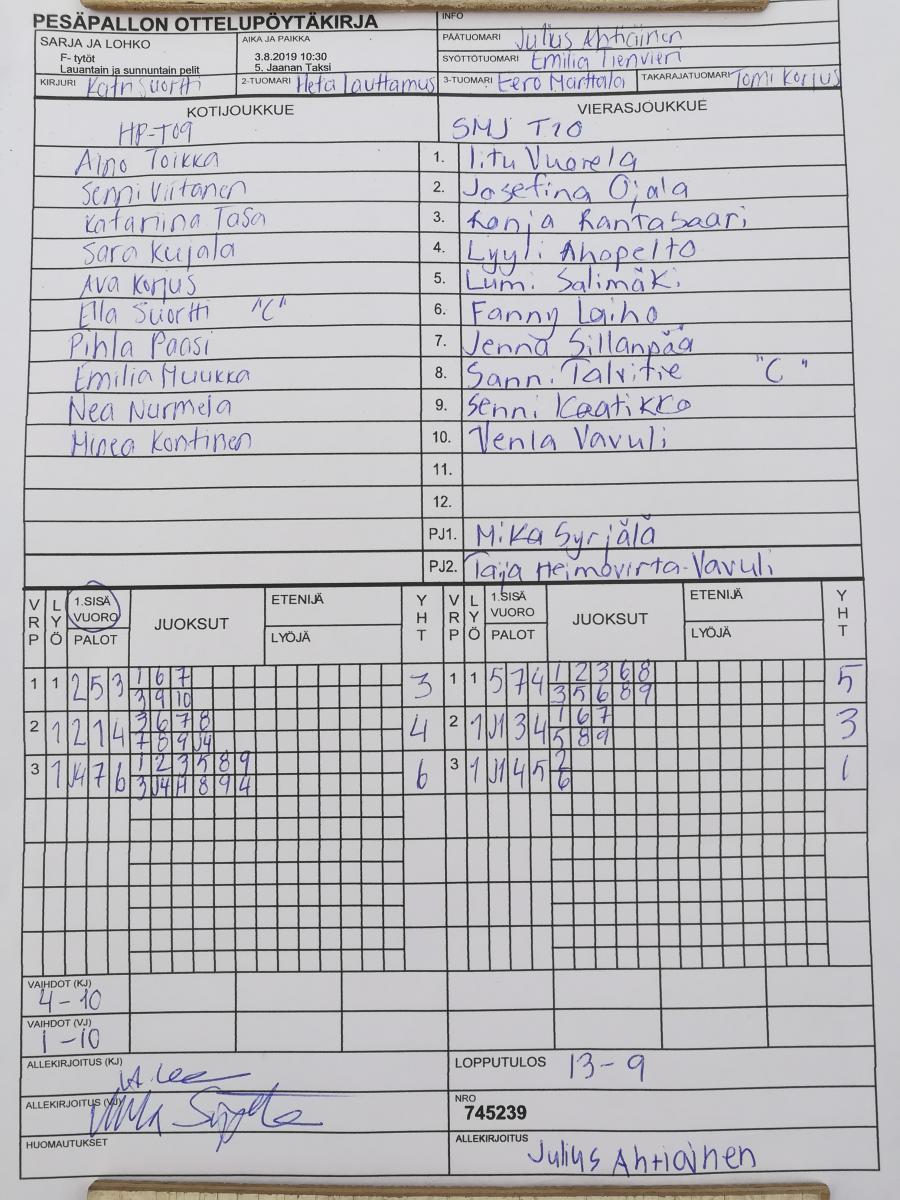 PESÄPALLON OTTELUPÖYTÄKIRJA
INFO
SARJA JA LOHKO
F- tytöt
Lauantain ja sunnuntain pelit
AIKA JA PAIKKA
3.8.2019 10:30
5. Jaanan Taksi
PÄÄTUOMARI Julius Ahtiainen
SYÖTTÖTUOMARI Emilia Tienvieri
KIRJURI Katri Suortti 2-TUOMARI Heta Lauttamus 3-TUOMARI Eero Marttala TAKARAJATUOMARI Tomi Korjus
KOTIJOUKKUE VIERASJOUKKUE
HP-T09 SMJ T10
Aino Toikka 1. Iitu Vuorela
Senni Viitanen 2. Josefina Ojala
Katariina Tasa 3. Ronja Rantasaari
Sara Kujala 4. Lyyli Ahopelto
Ava Korjus 5. Lumi Salimäki
Ella Suortti "C" 6. Fanny Laiho
Pihla Paasi 7. Jenna Sillanpää
Emilia Muukka 8. Sanni Talvitie "C"
Nea Nurmela 9. Senni Kaatikko
Minea Kontinen 10. Venla Vavuli
11.
12.
PJ1. Mika Syrjälä
PJ2. Taija Heimovirta-Vavuli
VRP LYÖ 1.SISÄ VUORO PALOT JUOKSUT ETENIJÄ LYÖJÄ YHT VRP LYÖ 1.SISÄ VUORO PALOT JUOKSUT ETENIJÄ LYÖJÄ YHT
1 1 2 5 3 1 6 7 3 1 1 5 7 4 1 2 3 6 8 5
3 9 10 3 5 6 8 9
2 1 2 1 4 3 6 7 8 4 2 1 J1 3 4 1 6 7 3
7 8 9 J4 5 8 9
3 1 J4 7 6 1 2 3 5 8 9 6 3 1 J1 4 5 2 1
3 J4 8 9 4 6
VAIHDOT (KJ)
4-10
VAIHDOT (VJ)
1-10
ALLEKIRJOITUS (KJ)
LOPPUTULOS 13-9
ALLEKIRJOITUS (VJ)
NRO
745239
HUOMAUTUKSET
ALLEKIRJOITUS
Julius Ahtiainen